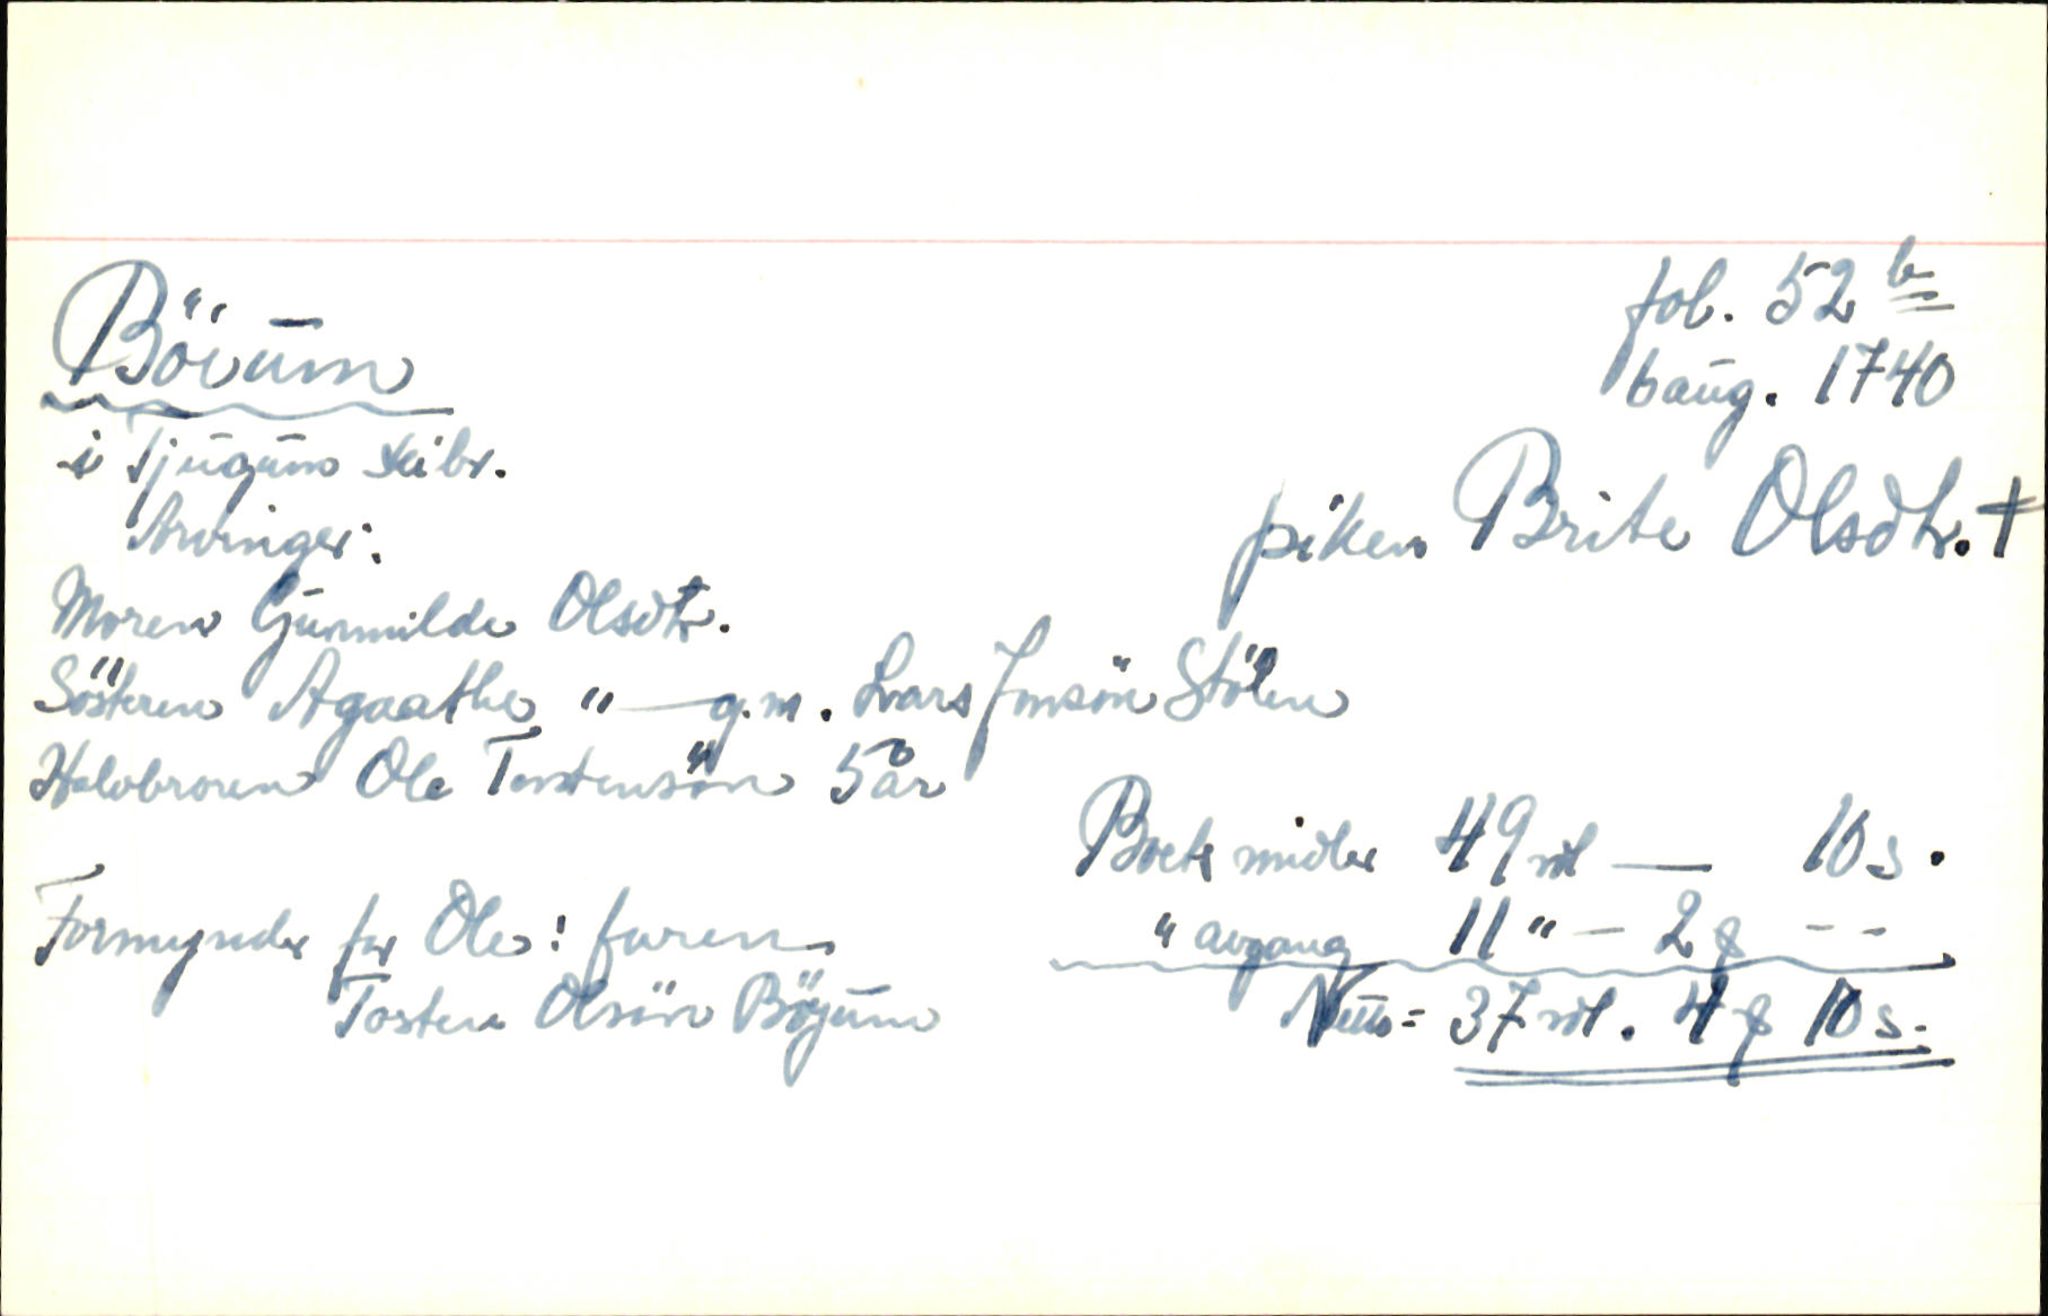 Böium
fol. 52 b
6 aug. 1740
i Tjugum skibr.
Arvinger:
piken Brite Olsdtr. †
Moren Gunnilde Olsdtr.
Sösteren Agaathe " — g.m. Lars Jonsön Stölen
Halvbroren Ole Torstensön 5 år
Boets midler 49 rdl — 10 s.
Formynder for Ole: faren
" avgang 11 " — 2 ƒ - -
Tosten Olsön Böyum
Netto = 37 rdl. 4 ƒ 10 s.